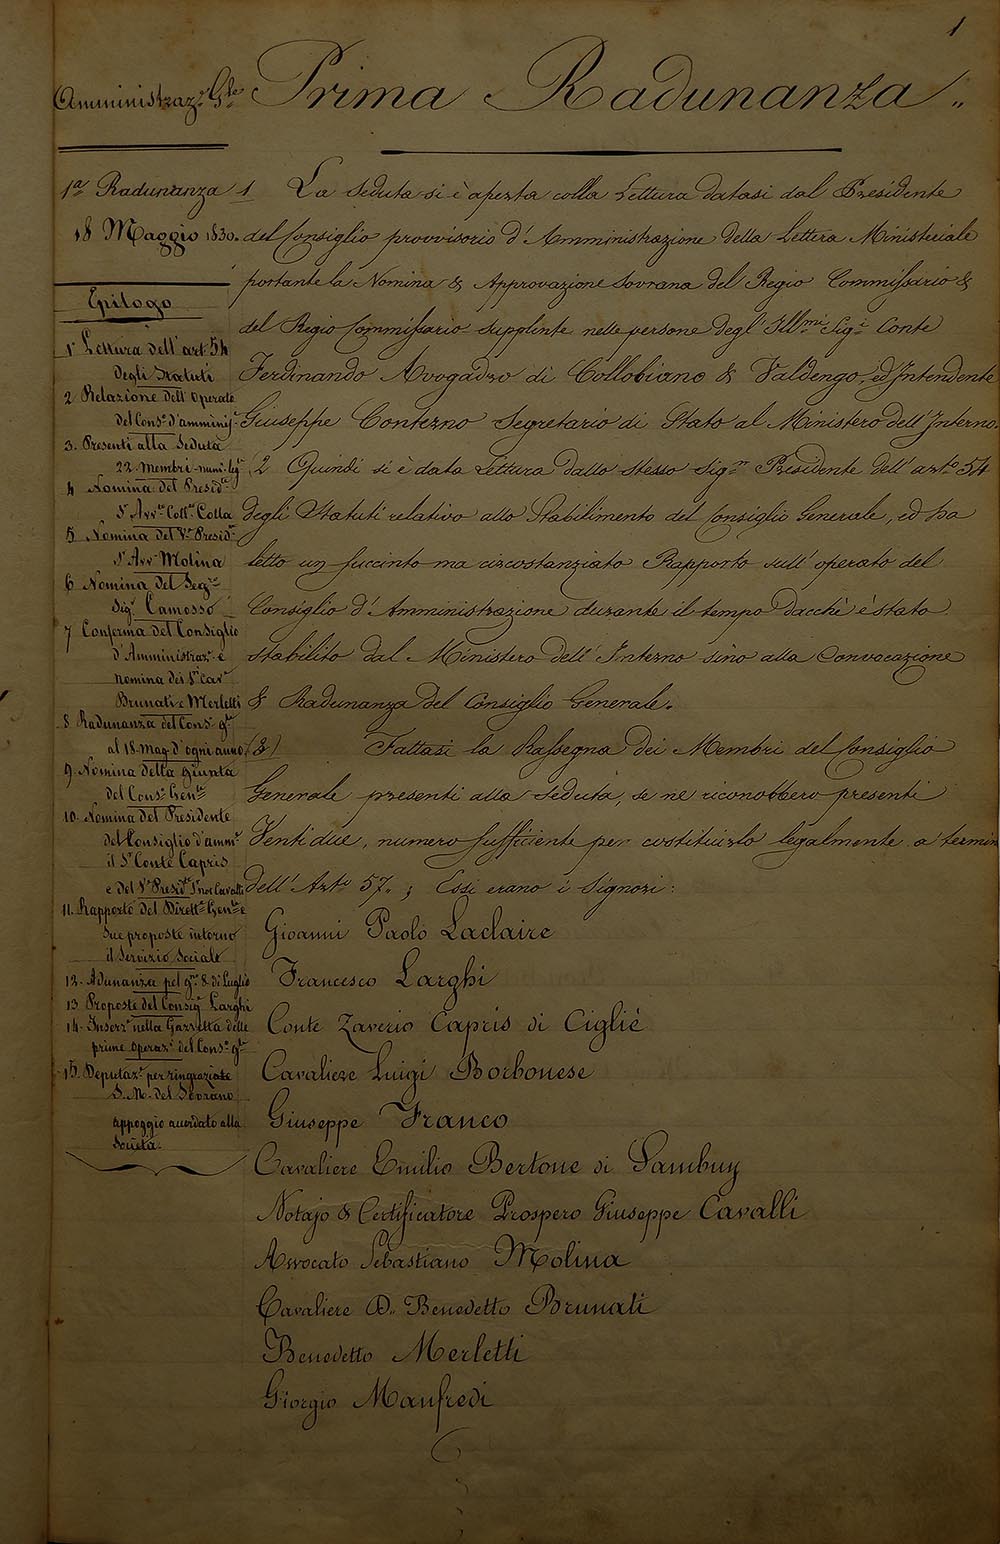 1
Amministraz.e G.le
Prima Radunanza „
1a Radunanza
18 Maggio 1830.
Epilogo
1° Lettura dell'art. 54
degli Statuti
2 Relazione dell'Operato
del Cons.o d'amminis.
3. Presenti alla Seduta
22 membri num. leg.e
4 Nomina del Presid.te
S.r Avv.to Coll.to Colla
5 Nomina del V.e Presid.te
S.r Avv.o Molina
6 Nomina del Seg.rio
Sig.r Camosso
7 Conferma del Consiglio
d'Amministraz.e e
nomina dei S.ri Cav.e
Brunati e Merletti
8 Radunanza del Cons.o g.le
al 18 mag. d'ogni anno
9. Nomina della giunta
del Cons.o Gen.le
10. Nomina del Presidente
del Consiglio d'amm.e
il S.r Conte Capris
e del V.e Presid.te S.r not. Cavalli
11. Rapporto del Dirett.e Gen.le e
sue proposte intorno
il Servizio Sociale
12. Adunanza pel g.no 8. di Luglio
13 Proposte del Consig.e Larghi
14. Inserz.e nella Gazzetta delle
prime operaz.i del Cons.o g.le
15. Deputaz.e per ringraziare
S. M. del Sovrano
appoggio accordato alla
Società.
1 La Seduta si è aperta colla Lettura datasi dal Presidente
del Consiglio provvisorio d'Amministrazione della Lettera Ministeriale
portante la Nomina & Approvazione Sovrana del Regio Commissario &
del Regio Commissario supplente nelle persone degl'Ill.mi Sig.i Conte
Ferdinando Avogadro di Collobiano & Valdengo, ed Intendente
Giuseppe Conterno Segretario di Stato al Ministero dell'Interno.
2 Quindi si è data Lettura dallo stesso Sig.r Presidente dell'art.o 54
degli Statuti relativo allo Stabilimento del Consiglio Generale, ed ha
letto un succinto ma circostanziato Rapporto sull'operato del
Consiglio d'Amministrazione durante il tempo dacchè è stato
stabilito dal Ministero dell'Interno sino alla Convocazione
& Radunanza del Consiglio Generale.
(3) Fattasi la Rassegna dei Membri del Consiglio
Generale presenti alla Seduta, se ne riconobbero presenti
Venti due, numero sufficiente per costituirlo legalmente a termin
dell'Art.o 57. ; Essi erano i Signori:
Gioanni Paolo Laclaire
Francesco Larghi
Conte Zaverio Capris di Ciglié
Cavaliere Luigi Borbonese
Giuseppe Franco
Cavaliere Emilio Bertone di Sambuy
Notajo & Certificatore Prospero Giuseppe Cavalli
Avvocato Sebastiano Molina
Cavaliere D. Benedetto Brunati
Benedetto Merletti
Giorgio Manfredi